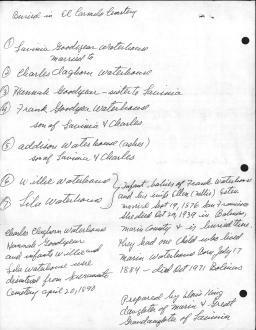 Buried in El Carmelo Cemetery
① Lavinia Goodyear Waterhouse
married to
② Charles Claghorn Waterhouse
③ Hannah Goodyear - sister to Lavinia
④ Frank Goodyear Waterhouse
son of Lavinia & Charles
⑤ Addison Waterhouse (ashes)
son of Lavinia & Charles
⑥ Willie Waterhouse
⑦ Lola Waterhouse
infant babies of Frank Waterhouse
and his wife Ellen (Nellie)
married Oct 19, 1876 San Francisco
She died Oct 20, 1939 in Bolinas,
Marin County & is buried there.
They had one child who lived
Marin Waterhouse Born July 17
1884 - died Oct 1971 Bolinas
Charles Claghorn Waterhouse
Hannah Goodyear
and infants Willie and
Lola Waterhouse were
disinterred from Sacramento
Cemetery April 20, 1890
Prepared by King
daughter of Marin & Great
Granddaughter of Lavinia